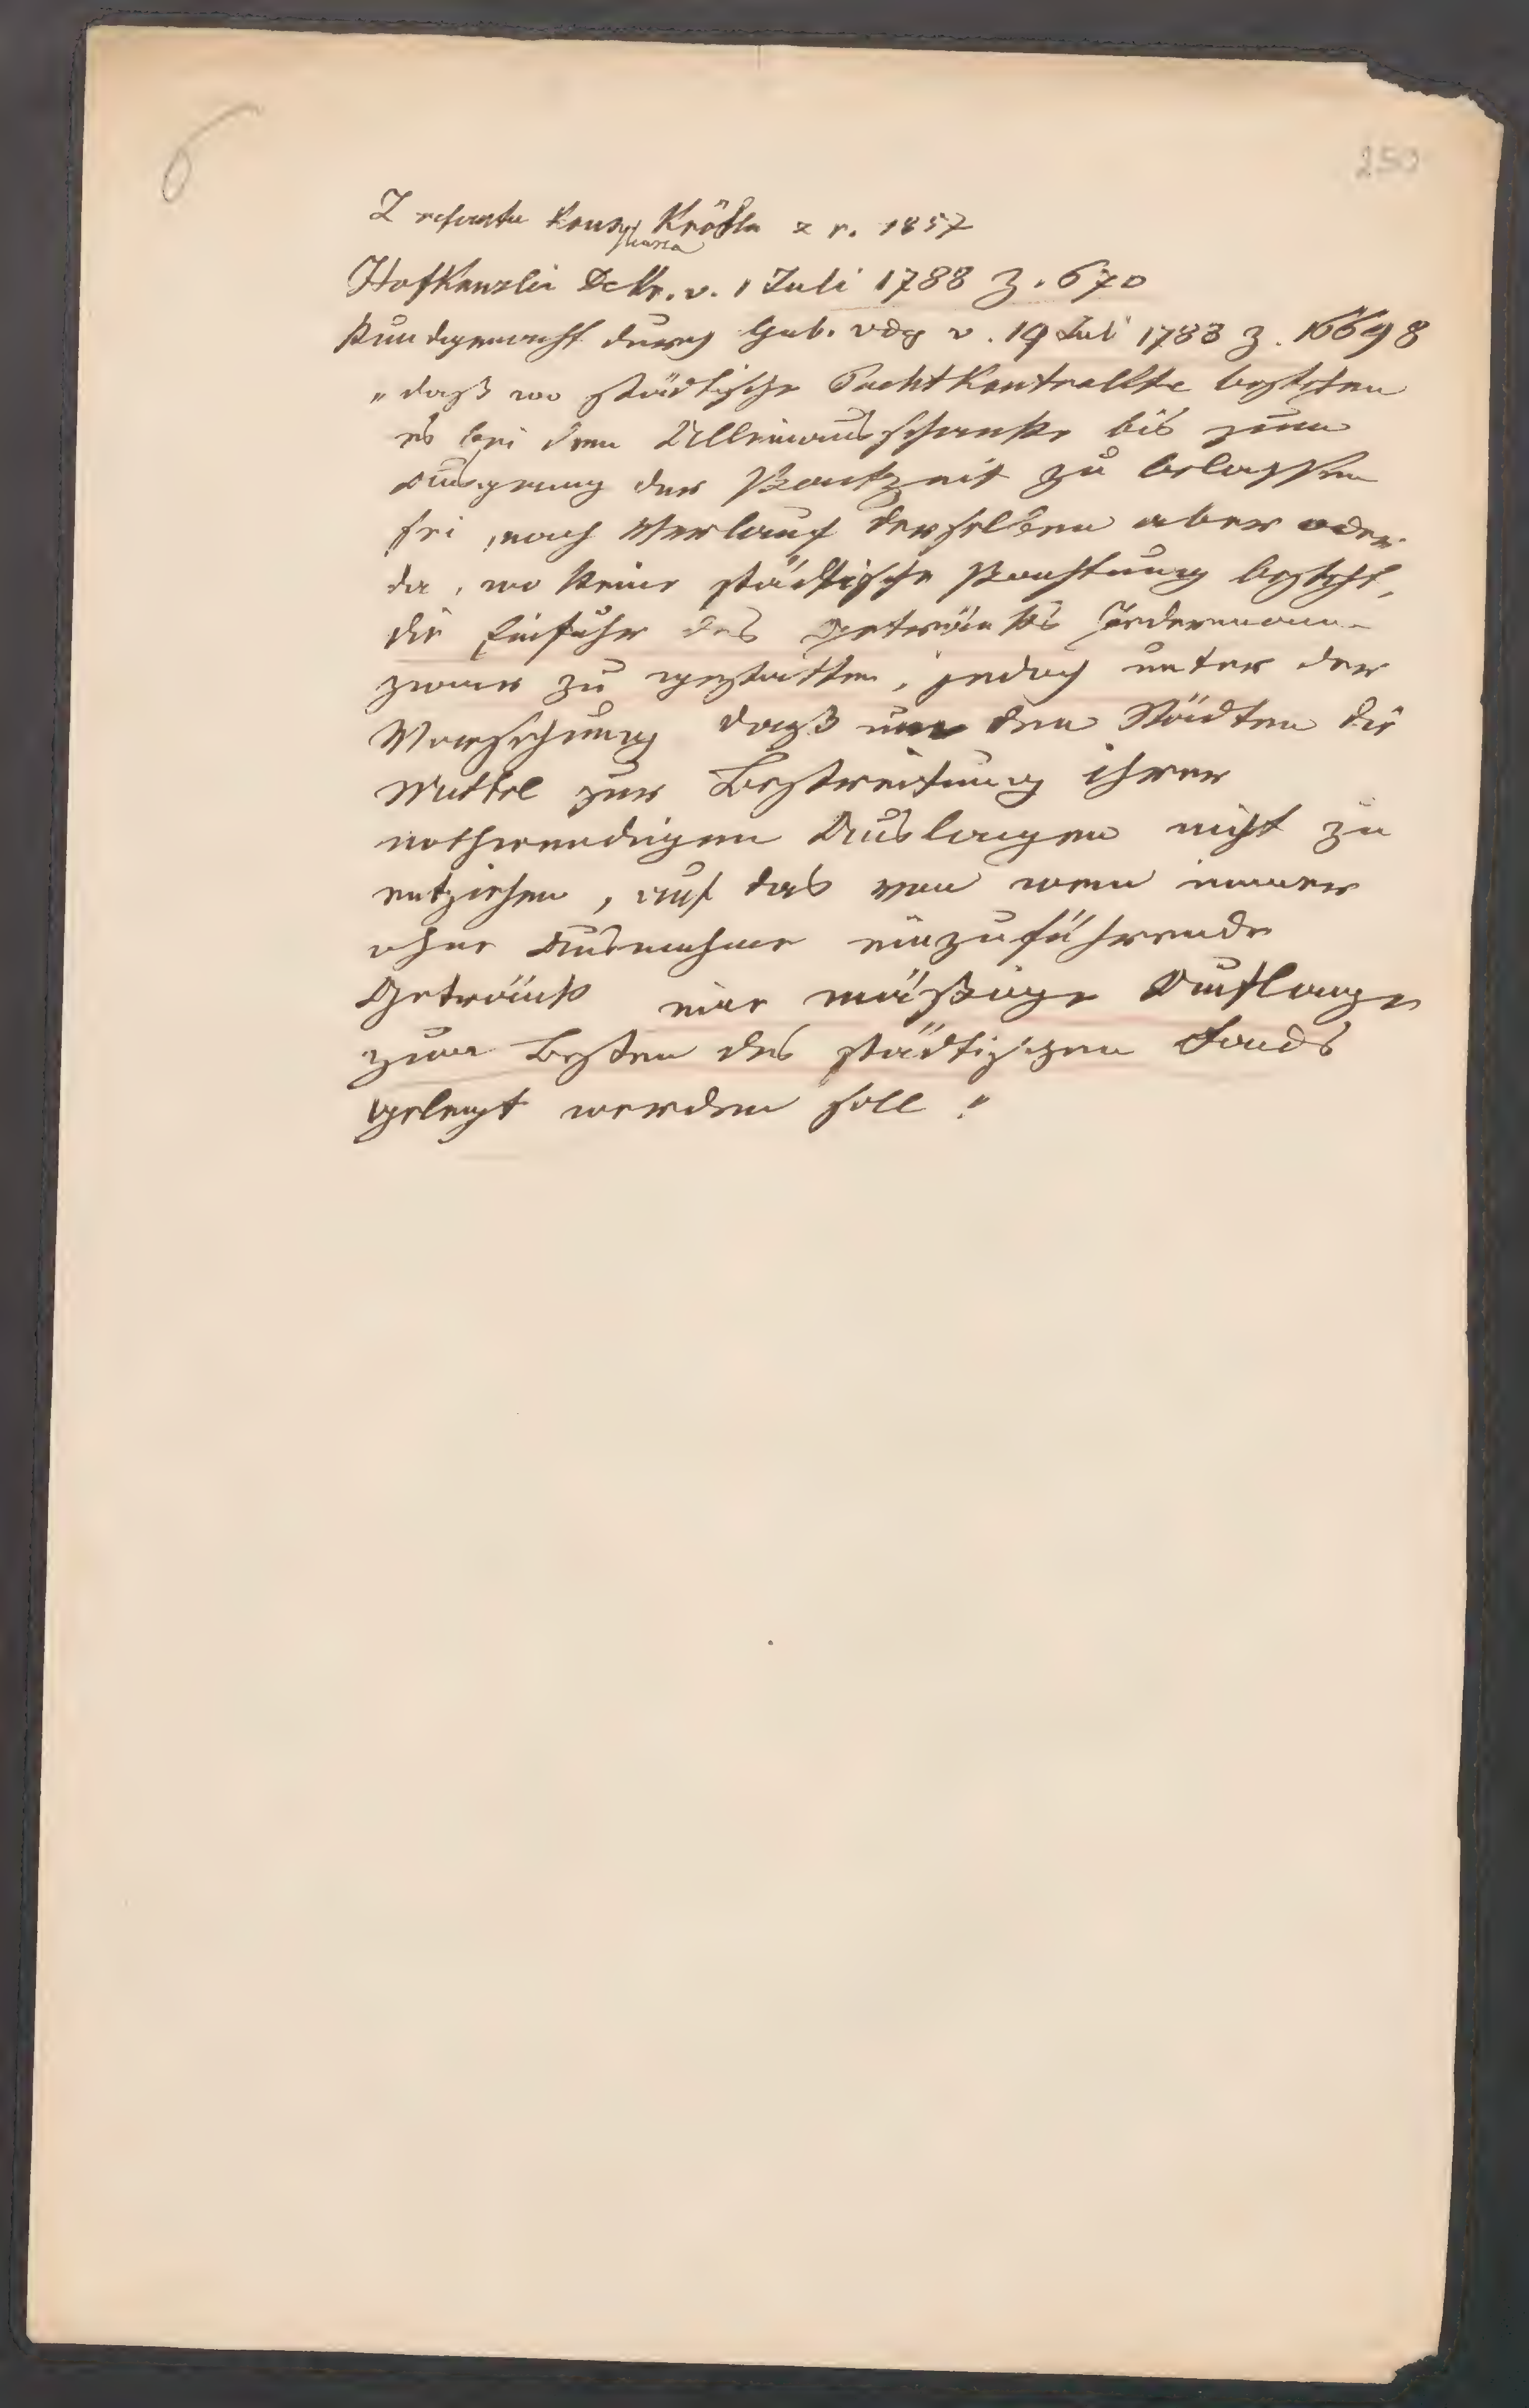 6
250
Z referatu konsyliarza Kröbla z r. 1857
Hofkanzlei Dekr. v. 1 Juli 1788 Z. 670
Kundgemacht durch Gub. vdg v. 19 Juli 1788 Z. 16698
„daß wo städtische Pachtkontrakte bestehen
es bei dem Alleinausschanke bis zum
Ausgang der Pachtzeit zu belassen
sei, nach Verlauf derselben aber oder
da, wo keine städtische Pachtung besteht,
die Einfuhr des Getränkes Jedermann
zwar zu gestatten, jedoch unter der
Vorsehung daß um den Städten die
Mittel zur Bestreitung ihrer
nothwendigen Auslagen nicht zu
entziehen, auf das von wem immer
ohne Ausnahme einzuführende
Getränk eine mäßige Auflage
zum Besten des städtischen Fonds
gelegt werden soll."